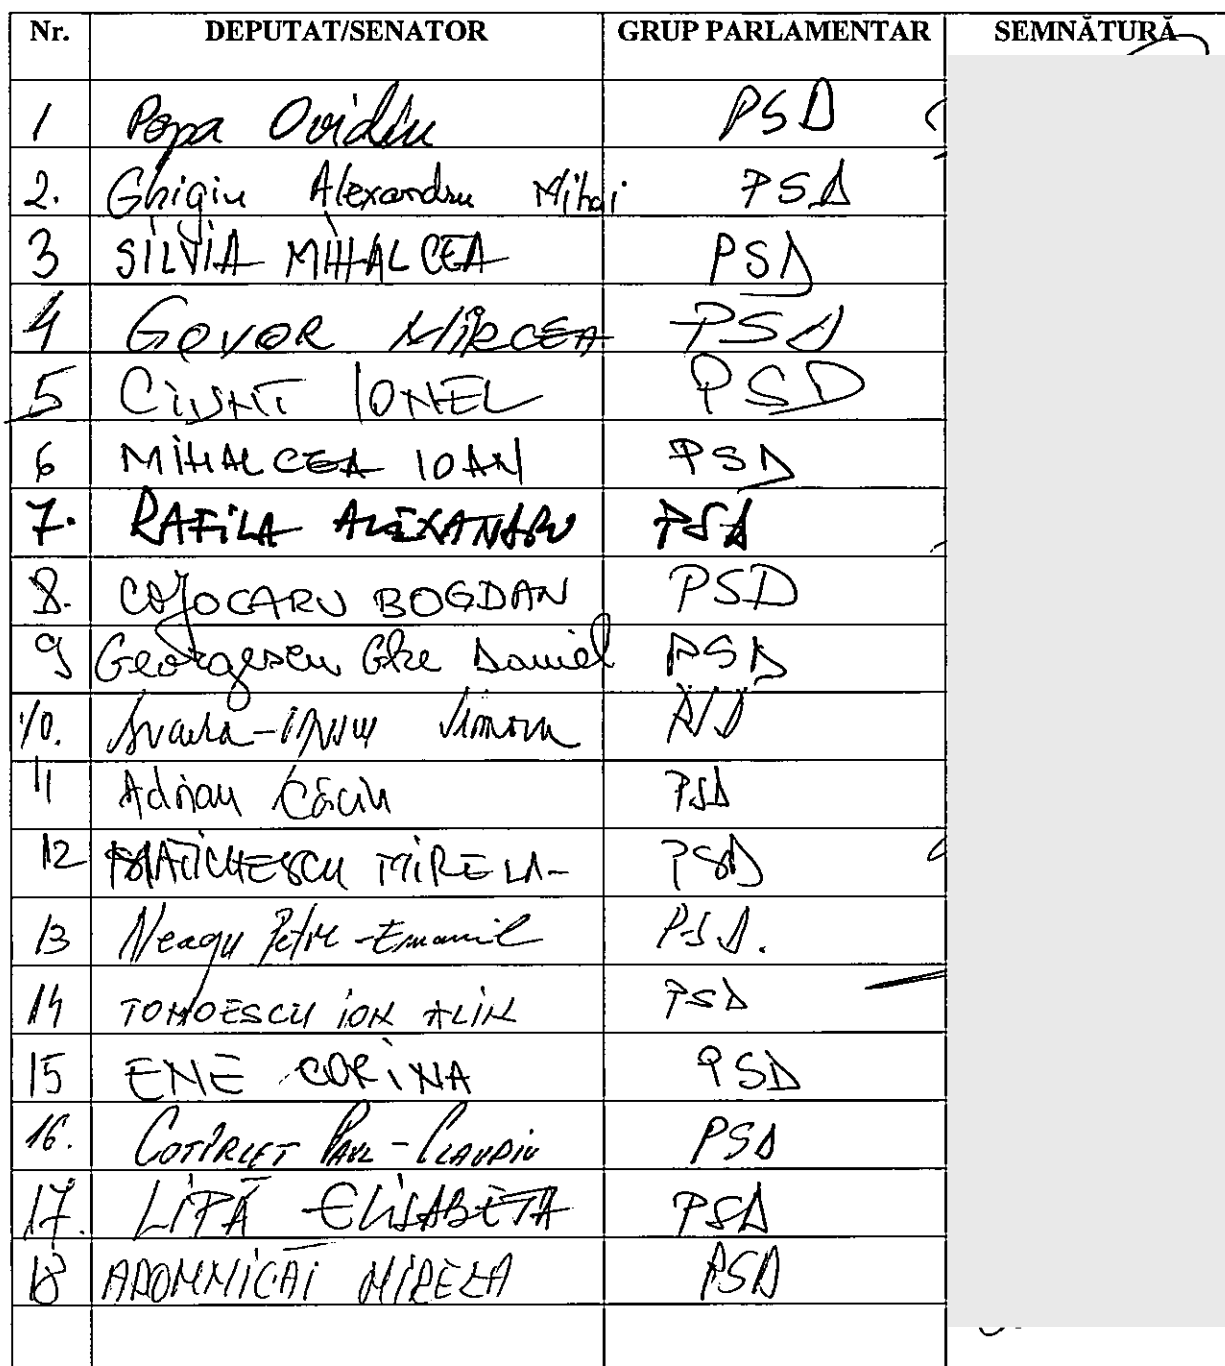 Nr. DEPUTAT/SENATOR GRUP PARLAMENTAR SEMNĂTURĂ
1 Popa Ovidiu PSD
2. Ghigiu Alexandru Mihai PSD
3 SILVIA MIHALCEA PSD
4 GOVOR MIRCEA PSD
5 CIUNT IONEL PSD
6 MIHALCEA IOAN PSD
7. RAFILA ALEXANDRU PSD
8. COJOCARU BOGDAN PSD
9 Georgescu Ghe Daniel PSD
10. PSD
11 Adrian Câciu PSD
12 MATICHESCU MIRELA- PSD
13 Neagu Petre-Emanoil PSD.
14 TOMOESCU ION ALIN PSD
15 ENE CORINA PSD
16. COTÎRLEȚ PAUL-CLAUDIU PSD
17. LIPĂ ELISABETA PSD
18 ADOMNICĂI MIRELA PSD